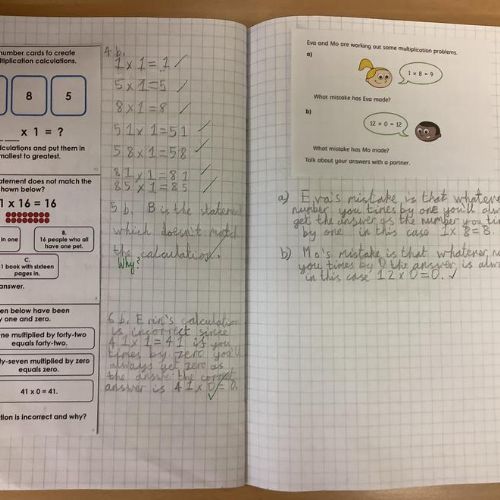 number cards to create
tiplication calculations.
8
5
x 1 = ?
alculations and put them in
mallest to greatest.
atement does not match the
hown below?
1 x 16 = 16
in one
B.
16 people who all
have one pet.
C.
1 book with sixteen
pages in.
answer.
en below have been
y one and zero.
ne multiplied by forty-two
equals forty-two.
ty-seven multiplied by zero
equals zero.
41 x 0 = 41.
tion is incorrect and why?
4 b.
1 x 1 = 1
5 x 1 = 5
8 x 1 = 8
5 1 x 1 = 5 1
5 8 x 1 = 5 8
8 1 x 1 = 8 1
8 5 x 1 = 8 5
5 b. B is the statement
which doesn't match
the calculation.
Why?
6 b. Erin's calculation
is incorrect since
4 1 x 1 = 4 1 is you
times by zero you'll
always get zero as
the answer the correct
answer is 4 1 x 0 = 0.
Eva and Mo are working out some multiplication problems.
a)
1 × 8 = 9
What mistake has Eva made?
b)
12 × 0 = 12
What mistake has Mo made?
Talk about your answers with a partner.
a) Eva's mistake is that whatever
number you times by one you'll alw
get the answer as the number you tim
by one in this case 1 x 8 = 8.
b) Mo's mistake is that whatever, nu
you times by 0 the answer is alwa
in this case 1 2 x 0 = 0.